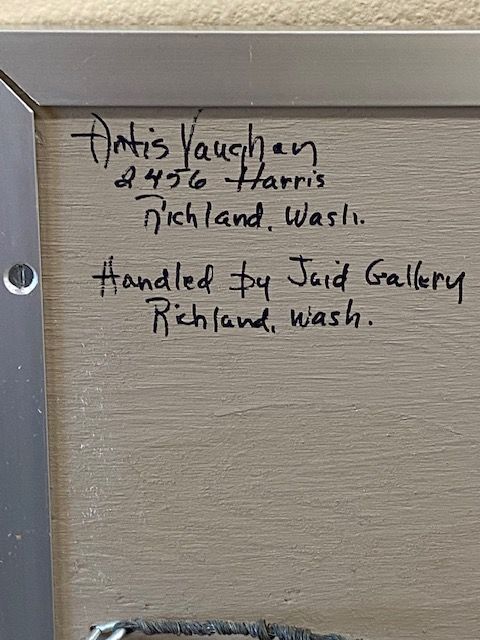 Artis Vaughan
2456 Harris
Richland, Wash.
Handled by Jaid Gallery
Richland, Wash.